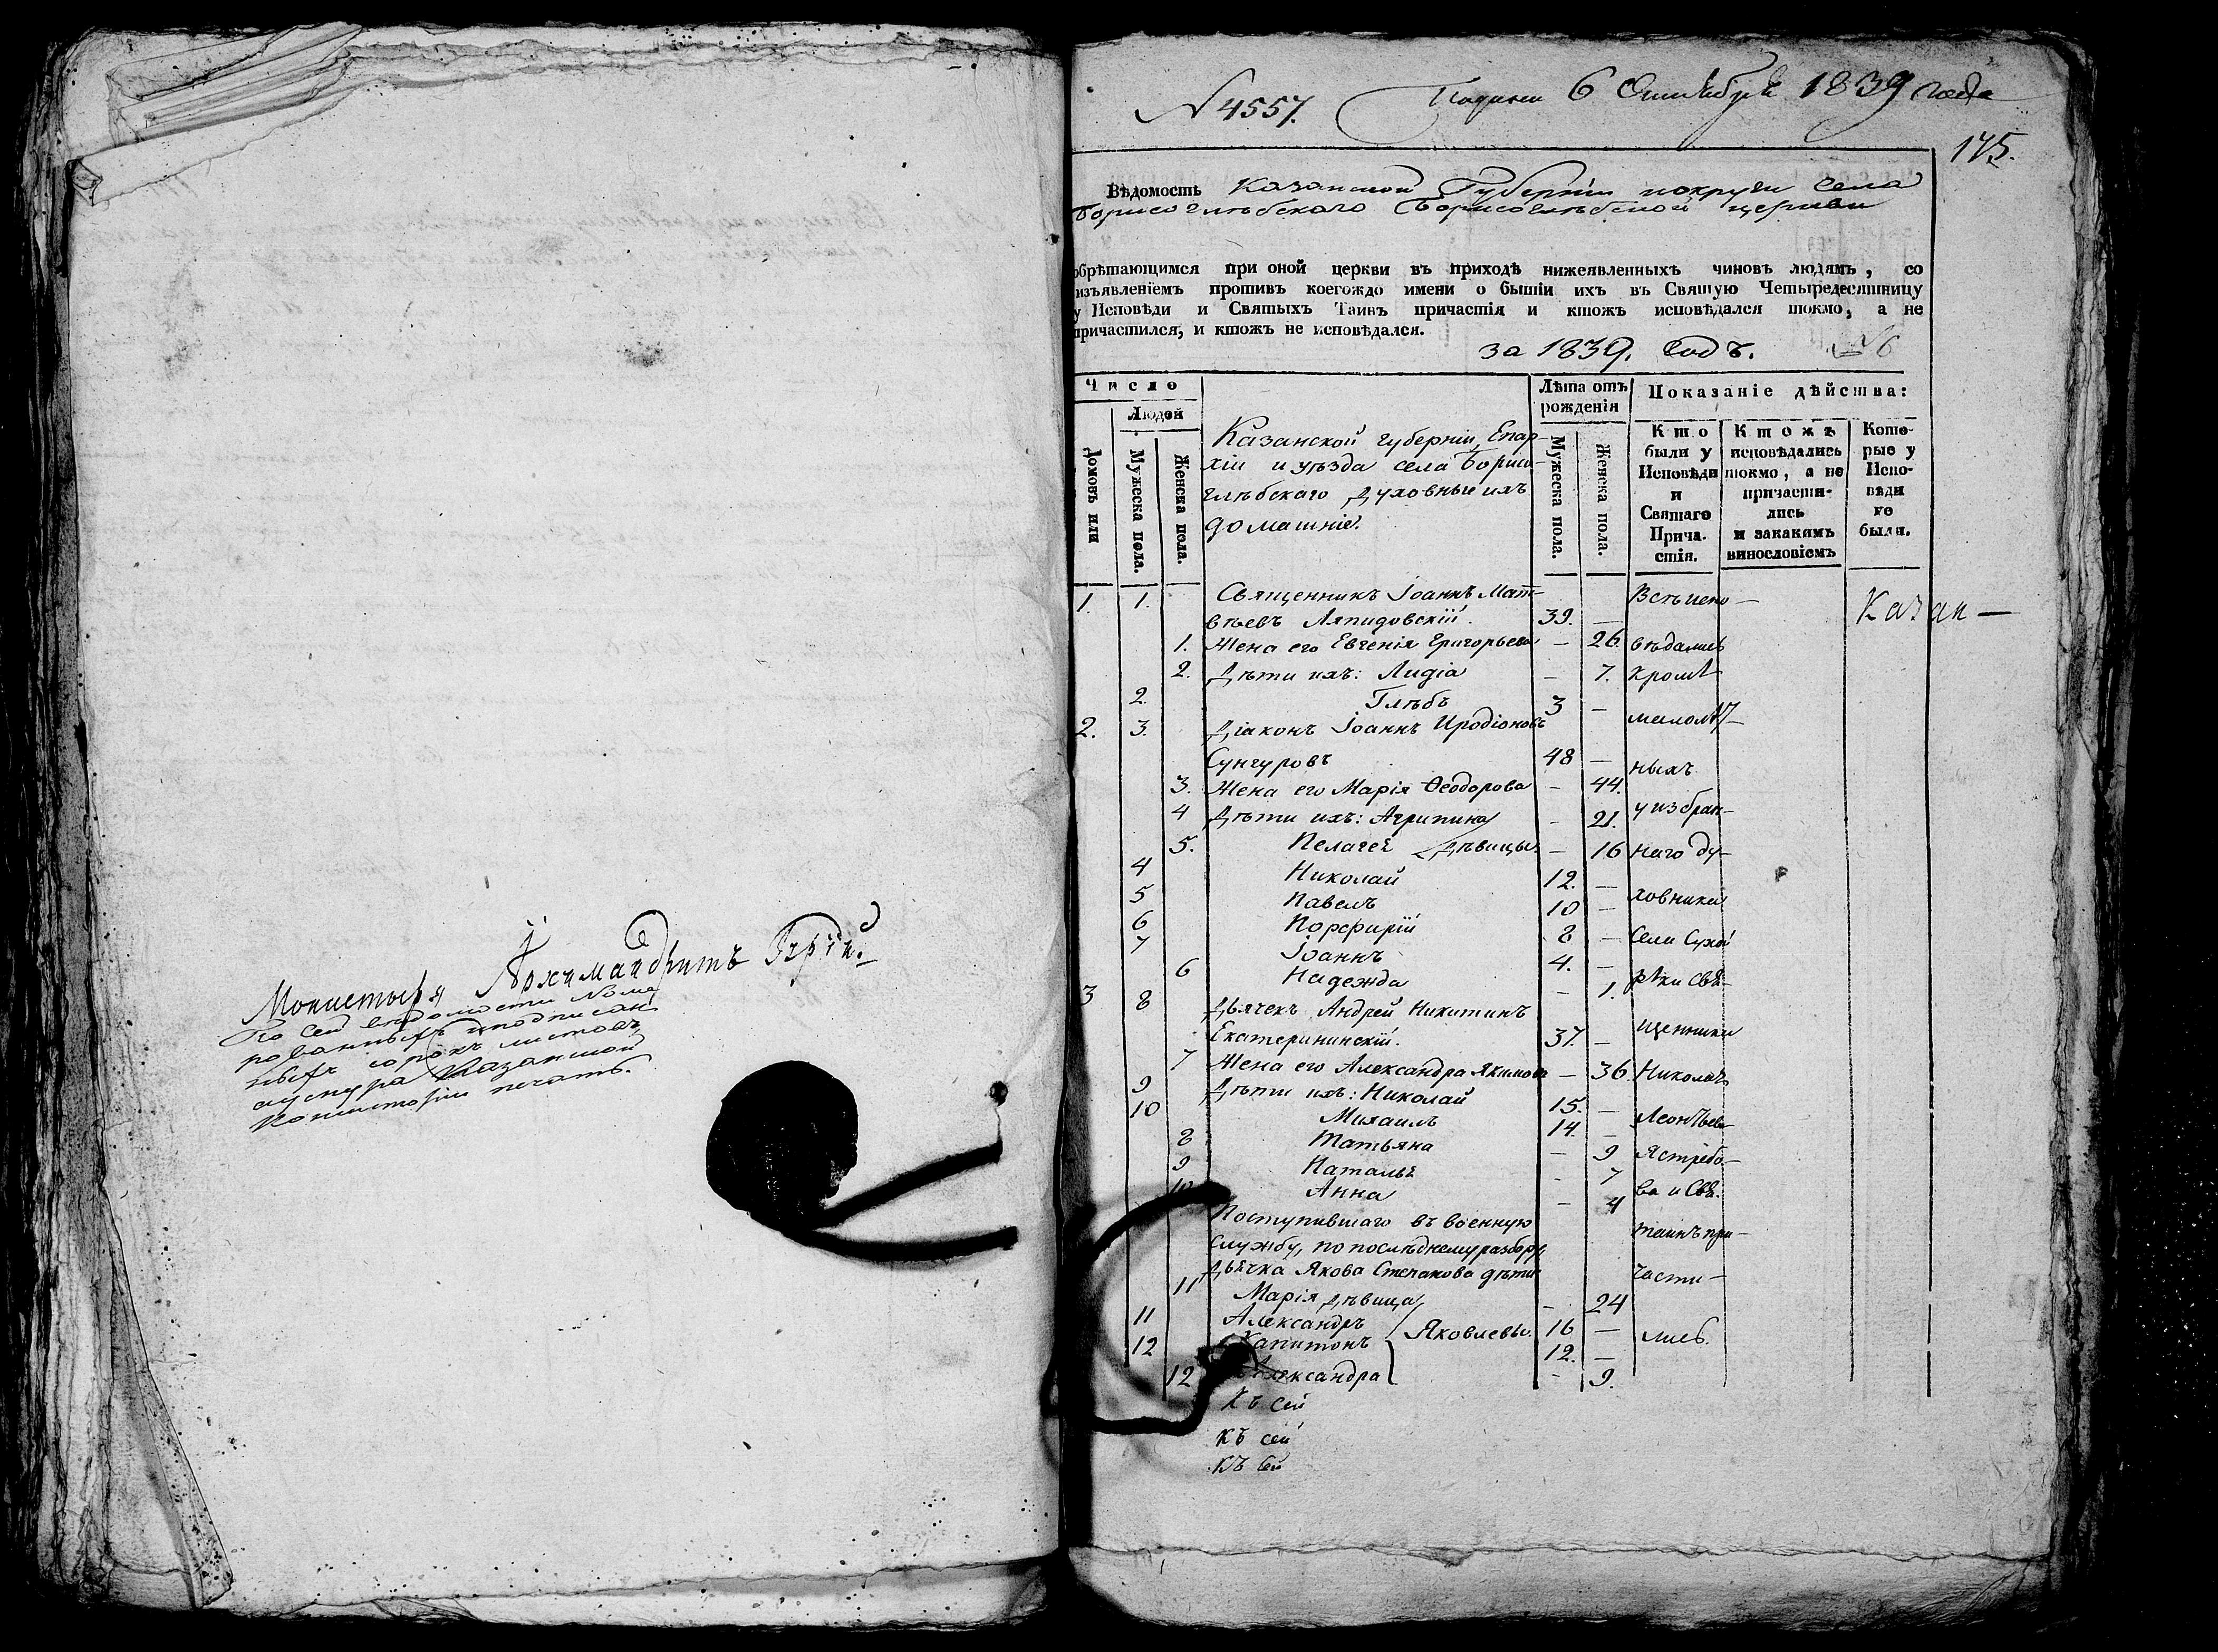 Монастыря Архимандритъ
По сей ведомости номе
рованныхъ и подписан
ныхъ сорокъ листовъ,
Казанской
Консисторіи печать.
N 4557. Подано 6 Октября 1839 года
175.
Вѣдомость Казанской Губерніи и округи села
Борисоглѣбскаго Борисоглѣбской церкви
обрѣтающимся при оной церкви въ приходѣ нижеявленныхъ чиновъ людямъ, со
изъявленіемъ противъ коегождо имени о бытіи ихъ въ Святую Четыредесятницу
у Исповѣди и Святыхъ Таинъ причастія и ктожъ исповѣдался токмо, а не
причастился, и ктожъ не исповѣдался.
за 1839. Годъ. № 6
Число
Людей
Домовъ или
Мужеска пола.
Женска пола.
Казанской губерніи, Епар-
хіи и уѣзда села Борисо-
глѣбскаго Духовные ихъ
домашніе.
Лѣта отъ рожденія
Мужеска пола.
Женска пола.
Показаніе дѣйства:
Кто были у Исповѣди и Святаго Прича-стія.
Ктожъ исповѣдались токмо, а не причасти-лись и закакимъ винословіемъ
Кото-рые у Испо-вѣди не были.
1. 1. Священникъ Іоаннъ Мат- Всѣ испо- Казан-
вѣевъ Ляпидовскій. 39. —
1. Жена его Евгенія Григорьева — 26. вѣдались
2. Дѣти ихъ: Лидіа — 7. кромѣ
2. Глѣбъ 3 —
2. 3. Діаконъ Іоаннъ Иродіоновъ малолѣт-
Сунгуровъ 48 — ныхъ
3. Жена его Марія Ѳеодорова — 44.
4 Дѣти ихъ: Агрипина — 21. у избран-
5. Пелагея дѣвицы. — 16 наго ду-
4 Николай 12. —
5 Павелъ 10 — ховника
6 Порфирій 8 — Села Сухой
7 Іоаннъ 4. —
6 Надежда — 1. рѣки Свя-
3 8 Дьячекъ Андрей Никитинъ щенника
Екатерининскій. 37. —
7 Жена его Александра Якимова — 36 Николая
9 Дѣти ихъ: Николай 15. — Леонтьева
10 Михаилъ 14. —
8 Татьяна — 9 Ястребо-
9 Наталья — 7 ва и Свя.
10 Анна — 4
Поступившаго въ военную таинъ при-
службу, по послѣднему разбору,
Дьячка Якова Степанова дѣти части-
11 Марія дѣвица — 24
11 Александръ Яковлевы. 16 — лись.
12 Капитонъ 12. —
12 Александра — 9.
Къ сей
Къ сей
Къ сей